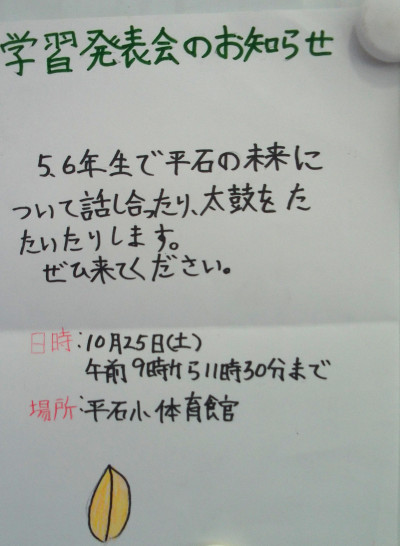 学習発表会のお知らせ
5、6年生で平石の未来に
ついて話し合ったり、太鼓をた
たいたりします。
ぜひ来てください。
日時:10月25日(土)
午前9時から11時30分まで
場所:平石小体育館